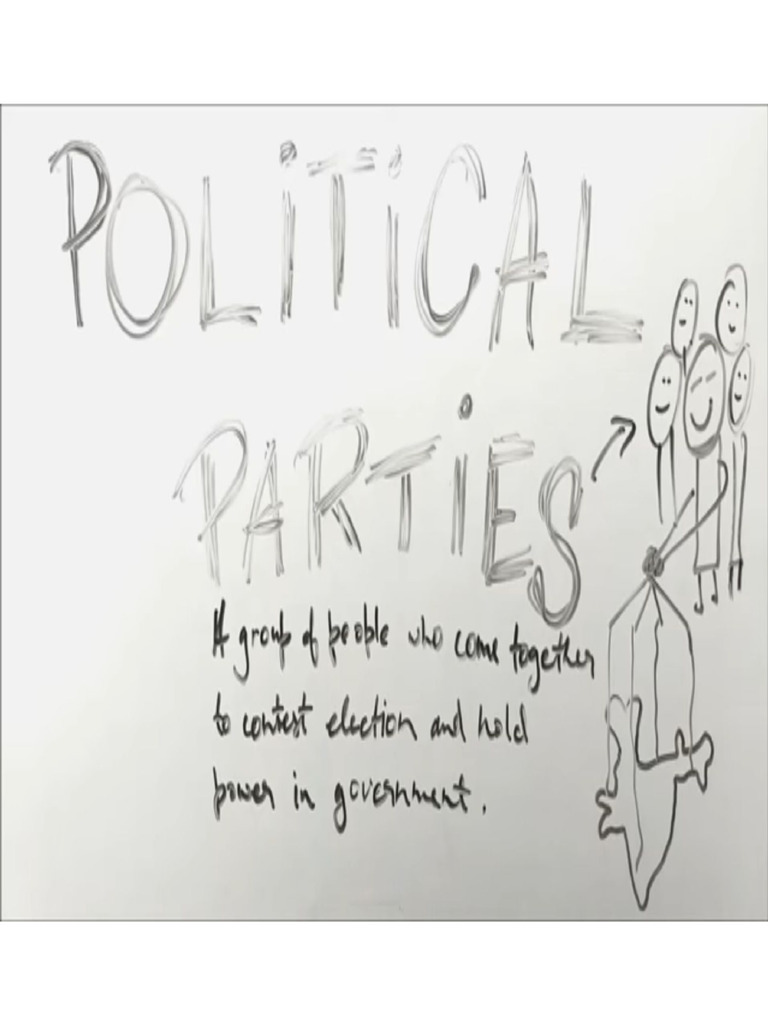 POLiTiCAL
PARTiES
A group of people who come together
to contest election and hold
power in government.